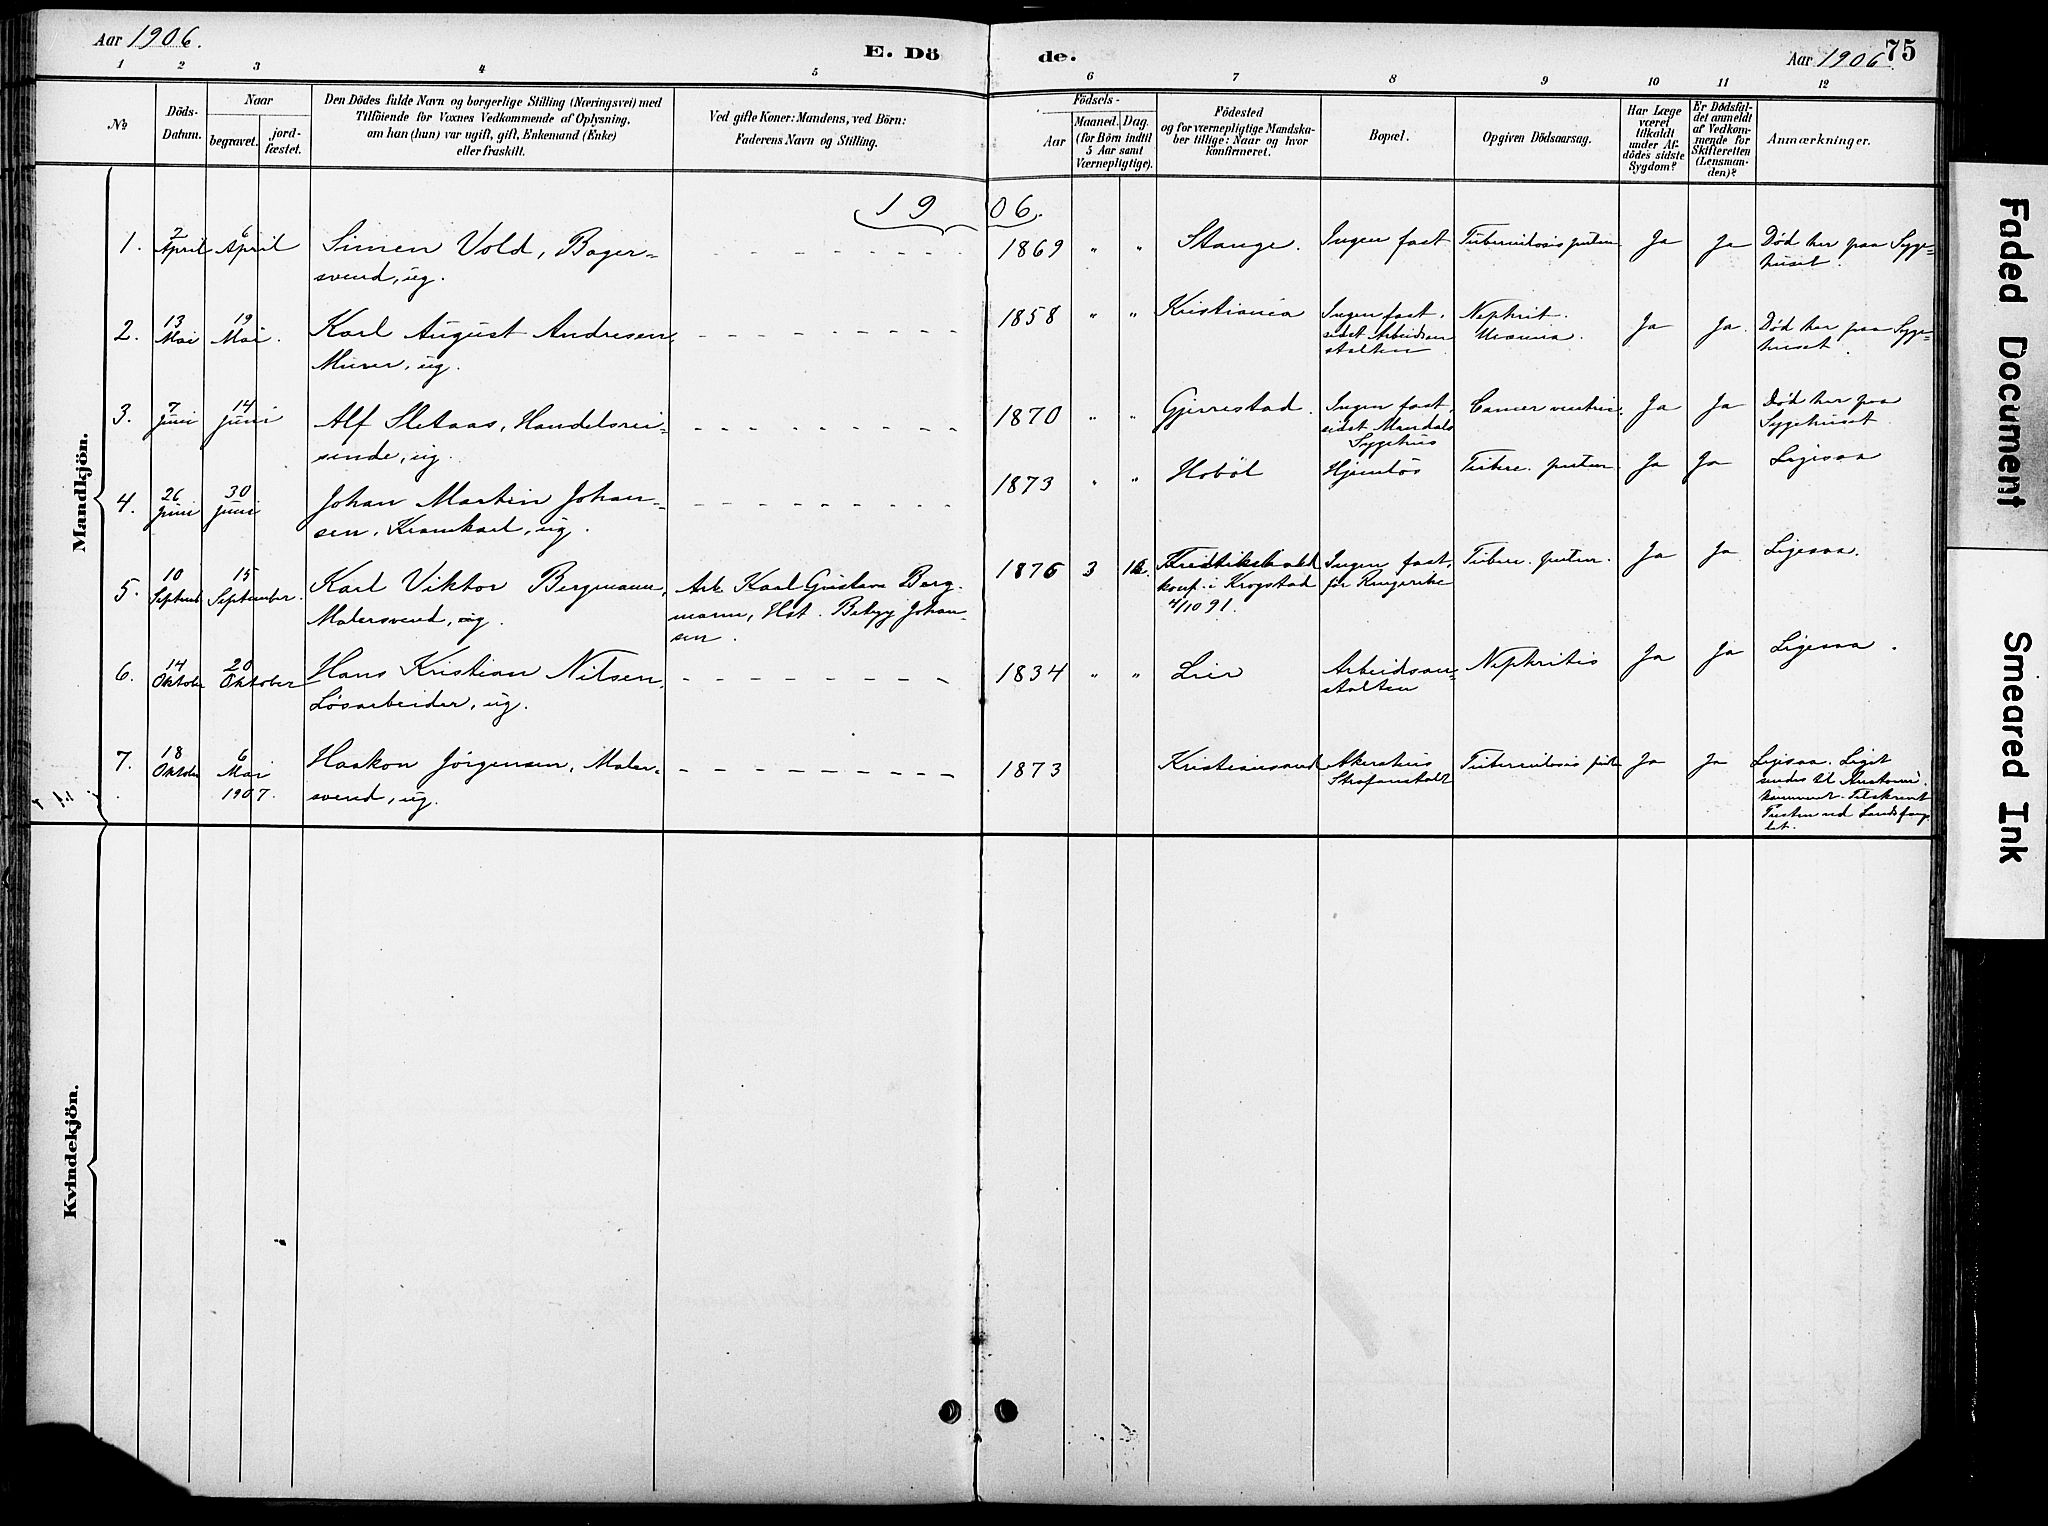 Aar 1906.
E. Dö
de.
Aar 1906
75
1 2 3 4 5 6 7 8 9 10 11 12
№
Döds-
Datum.
Naar
begravet.
jord-
fæstet.
Den Dödes fulde Navn og borgerlige Stilling (Næringsvei) med
Tilföiende for Voxnes Vedkommende af Oplysning,
om han (hun) var ugift, gift, Enkemand (Enke)
eller fraskilt.
Ved gifte Koner: Mandens, ved Börn:
Faderens Navn og Stilling.
Födsels-
Aar
Maaned.
Dag.
(for Börn indtil
5 Aar samt
Værnepligtige).
Födested
og for værnepligtige Mandska-
ber tillige: Naar og hvor
konfirmeret.
Bopæl.
Opgiven Dödsaarsag.
Har Læge
været
tilkaldt
under Af-
dödes sidste
Sygdom?
Er Dödsfal-
det anmeldt
af Vedkom-
mende for
Skifteretten
(Lensman-
den)?
Anmærkninger.
Mandkjön.
1906.
1.
2
April
6
April
Simen Vold, Bager-
svend, ug.
1869 " "
Stange.
Ingen fast
Tuberculosis pulm
Ja
Ja
Død her paa Syge-
huset.
2.
13
Mai
19
Mai.
Karl August Andresen,
Murer, ug.
1858 " "
Kristiania
Ingen fast,
sidst Arbeidsan
stalten
Nephrit.
Uræmia.
Ja
Ja.
Død her paa Syge-
huset.
3.
7
Juni
14
Juni
Alf Sletaas, Handelsrei-
sende, ug.
1870 " "
Gjerrestad.
Ingen fast,
sidst Mandals
Sygehus
Cancer ventric.
Ja
Ja
Død her paa
Sygehuset.
4.
26
Juni
30
Juni
Johan Martin Johan-
sen, Kramkarl, ug.
1873 " "
Hobøl
Hjemløs
Tuberc. pulm.
Ja
Ja
Ligesaa
5.
10
Septemb
15
September.
Karl Viktor Bergmann,
Malersvend, ug.
Arb. Karl Gustav Berg-
mann, Hst. Johan-
sen.
1876 3
konf. i Krogstad
4/10 91.
Ingen fast,
før Ringerike
Tuberc. pulm.
Ja
Ja
Ligesaa.
6.
14
Oktober
20
Oktober
Hans Kristian Nilsen,
Løsarbeider, ug.
1834 " "
Lier
Arbeidsan-
stalten
Nephritis
Ja
Ja
Ligesaa.
7.
18
Oktober
6
Mai
1907.
Haakon Jørgensen, Maler-
svend, ug.
1873
Kristianssand
Akershus
Strafanstalt
Tuberculosis pulm
Ja
Ja
Ligesaa. Liget
sendes til Anatomi-
kammeret. Tilskrevet
Presten ved Landsfæng-
slet.
Kvindekjön.
Faded Document
Smeared Ink